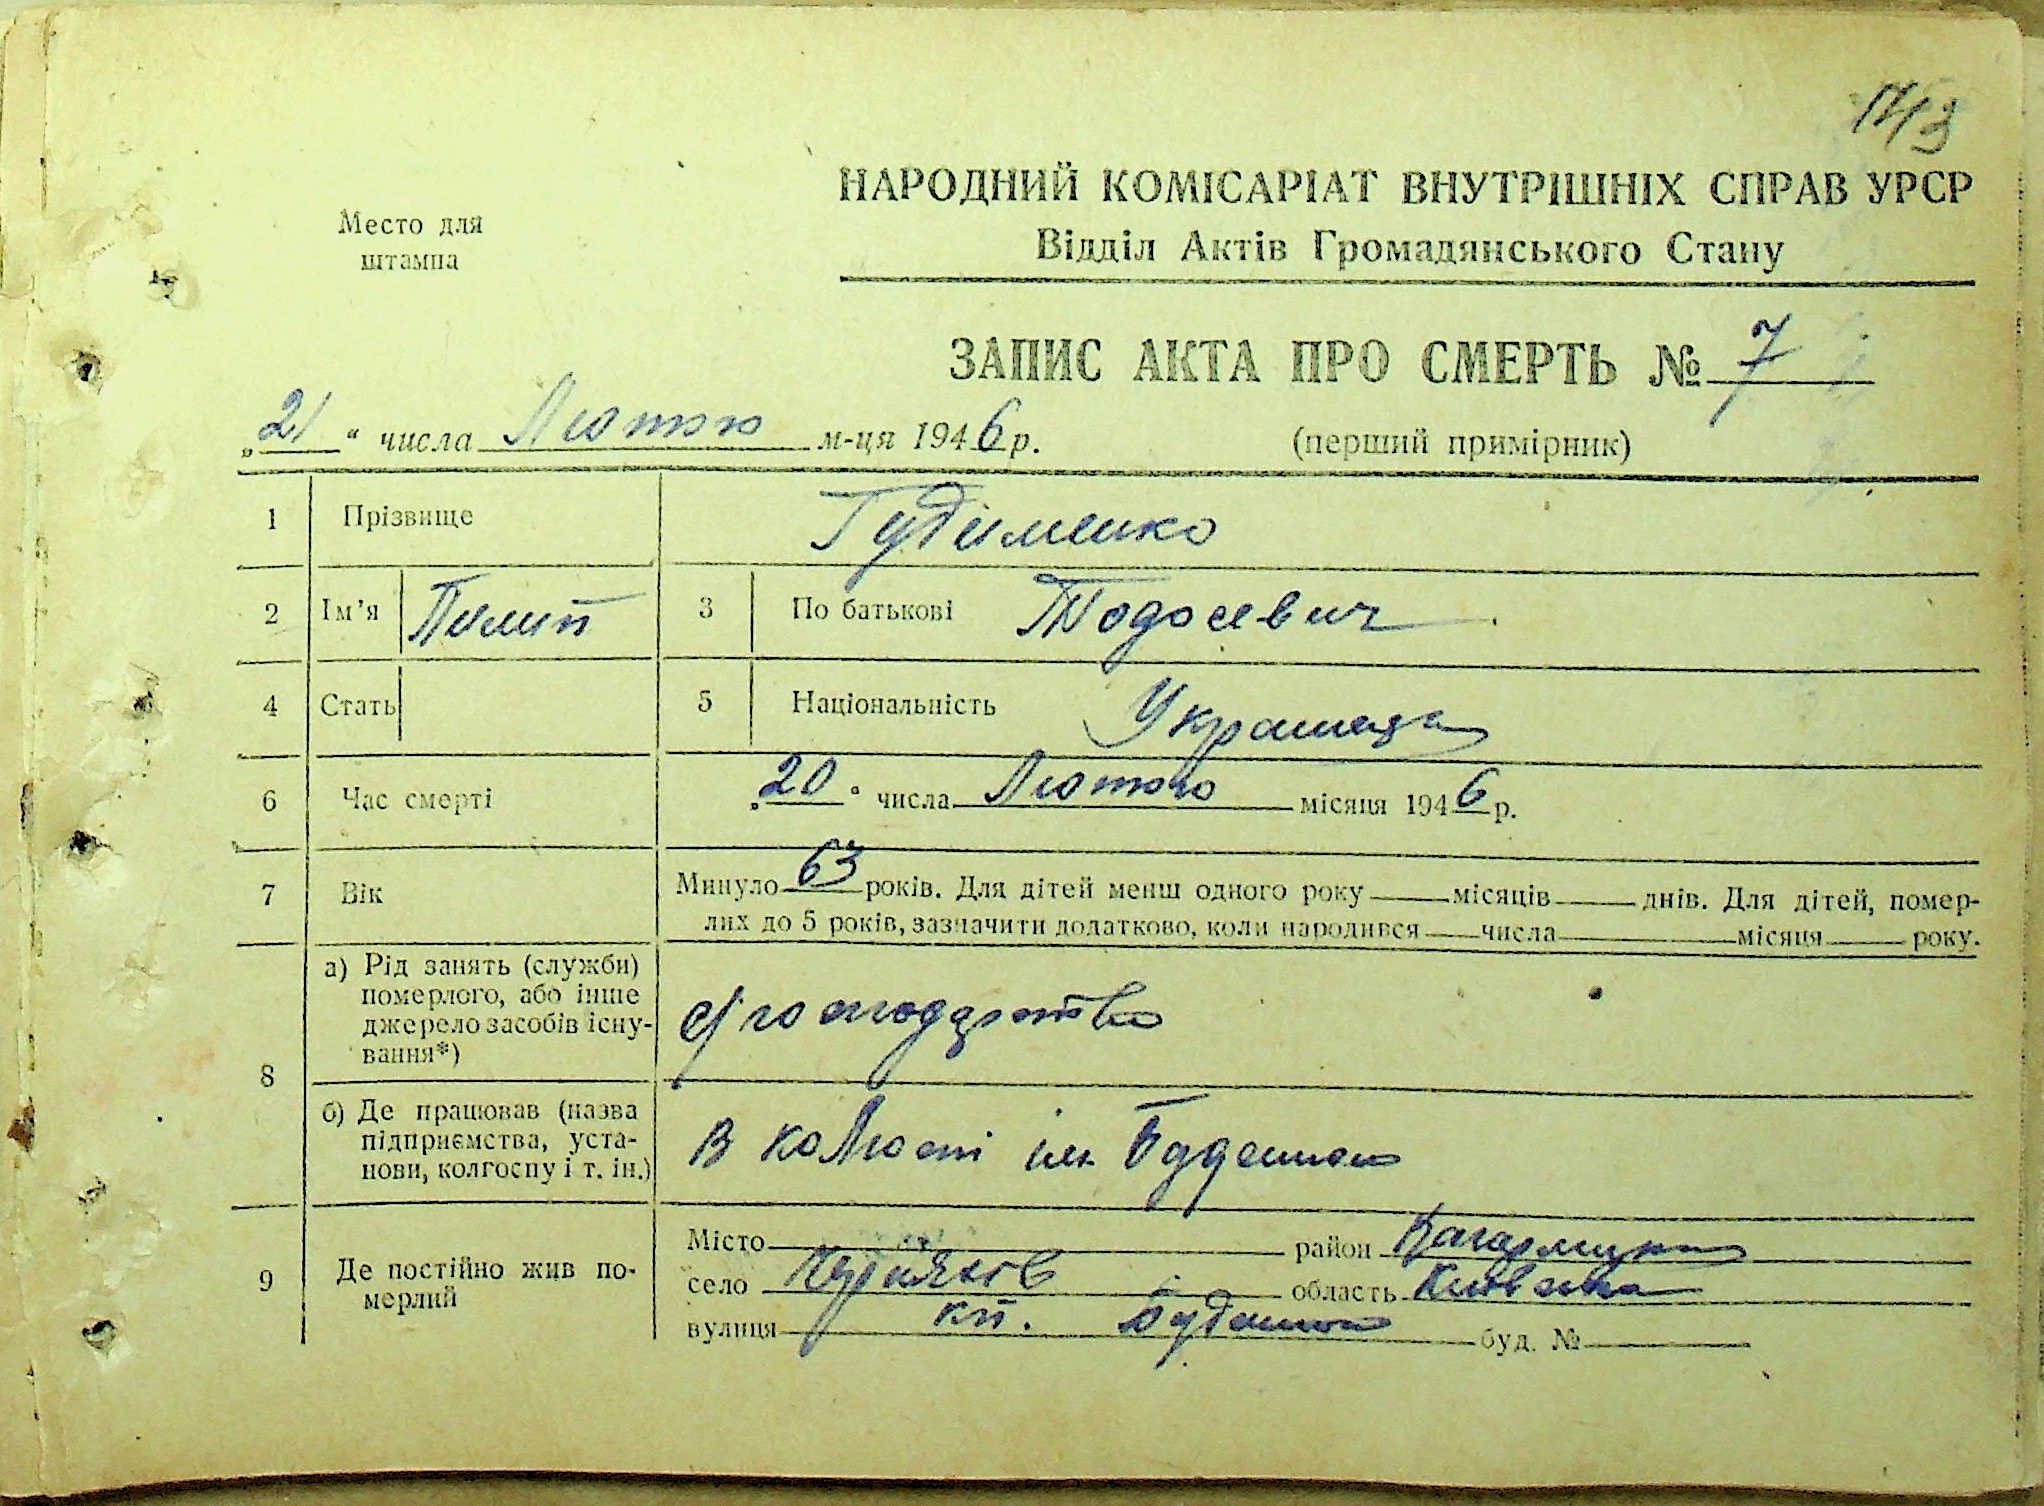 143
Место для
штампа
НАРОДНИЙ КОМІСАРІАТ ВНУТРІШНІХ СПРАВ УРСР
Відділ Актів Громадянського Стану
ЗАПИС АКТА ПРО СМЕРТЬ № 7
„21“ числа Лютого м-ця 1946 р.
(перший примірник)
1 Прізвище Гудименко
2 Ім’я Пилип 3 По батькові Тодосевич
4 Стать 5 Національність
6 Час смерті „20“ числа Лютого місяця 1946 р.
7 Вік Минуло 63 років. Для дітей менш одного року місяців днів. Для дітей, помер-
лих до 5 років, зазначити додатково, коли народився числа місяця року.
8 а) Рід занять (служби)
померлого, або інше
джерело засобів існу-
вання*)
б) Де працював (назва
підприємства, уста-
нови, колгоспу і т. ін.)
В ім.
9 Де постійно жив по-
мерлий
Місто район
село область Київська
вулиця буд. №